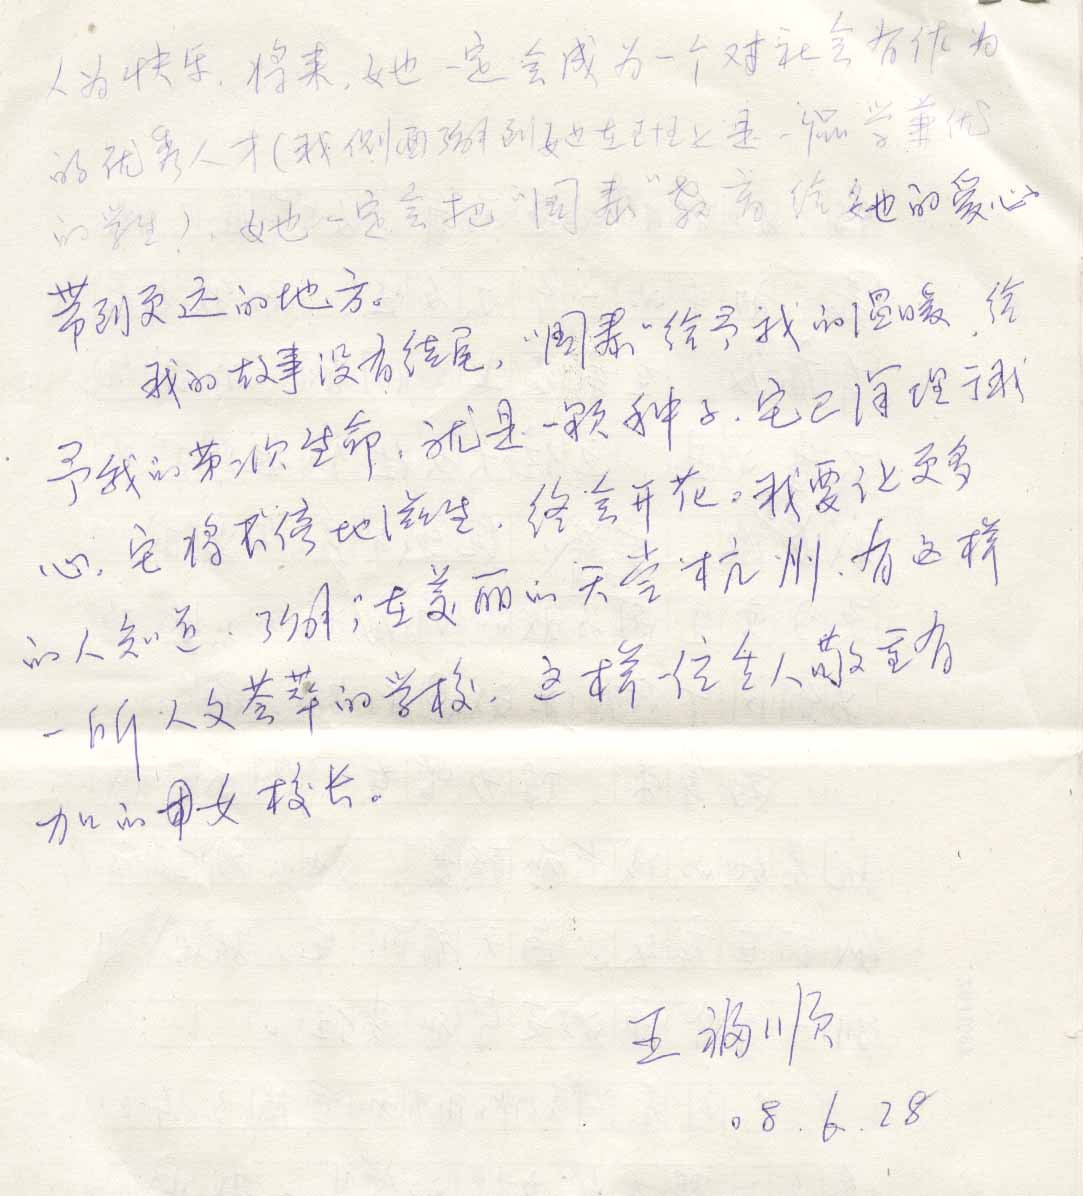 人为快乐，将来，她一定会成为一个对社会有作为
的优秀人才（我侧面了解到她在班上是一品学兼优
的学生），她一定会把“闰泰”教育给她的爱心
带到更远的地方。
我的故事没有结尾，“闰泰”给予我的温暖，给
予我的第二次生命，就是一颗种子，它已深埋于我
心，它将不停地滋生，终会开花。我要让更多
的人知道，了解；在美丽的天堂杭州，有这样
一所人文荟萃的学校，这样一位令人敬重有
加的女校长。
王福顺
08.6.28